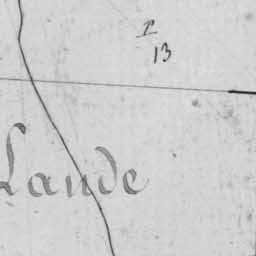 13
Lande